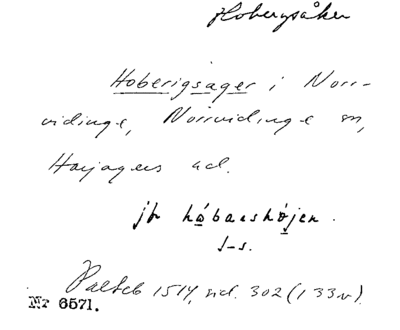 Hobergsåker
Hoberigsager i Norr-
vidinge, Norrvidinge sn,
Harjagers hd.
jfr håbarshøjen.
s-s.
Palteb 1514, sid. 302 (133v).
Nr 6571.